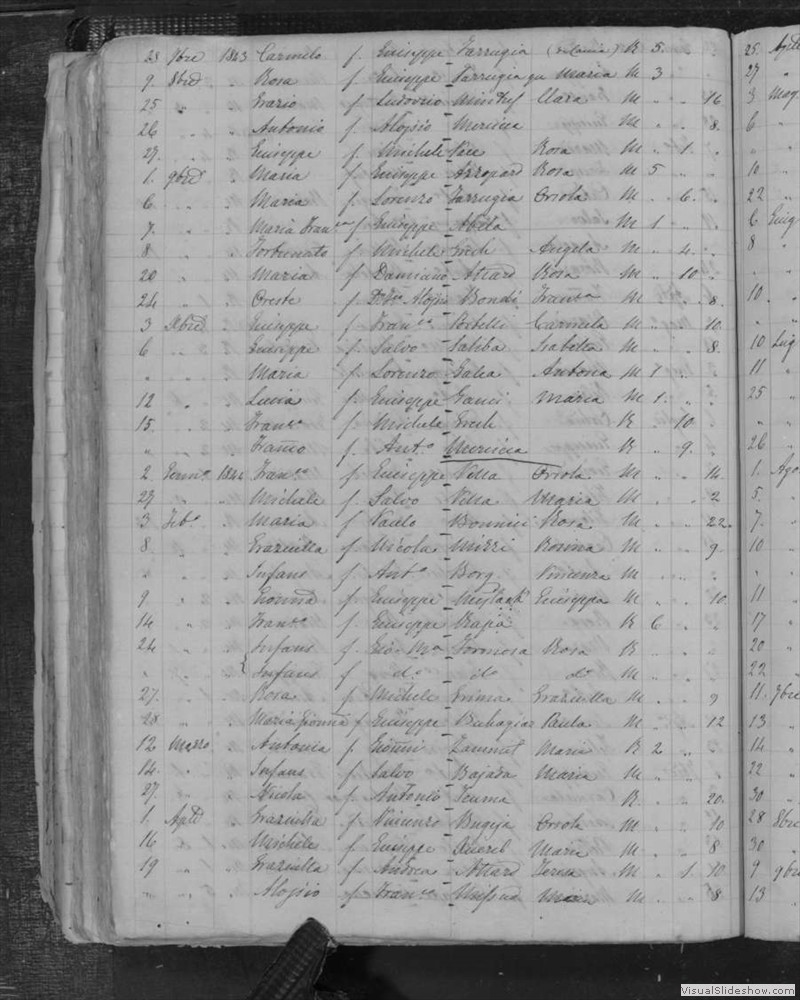 23 7bre 1843 Carmelo f. Giuseppe Farrugia R 5
9 8bre " Rosa f. Giuseppe Farrugia qu Maria M 3
25 " " Grazio f. Ludovico Clara M " " 16
26 " Antonio f. Aloisio Mercieca M " 8
27 " Giuseppe f. Michele Pace Rosa M " 1
1 9bre " Maria f. Giuseppe Azzopard Rosa M 5
6 " Maria f. Lorenzo Farrugia Orsola M " 6
7 " Maria Fran f. Giuseppe Abela M 1
8 " Fortunato f. Michele Grech Angela M " 4
20 " Maria f. Damiano Attard Rosa M " 10
24 " Oreste f. Aloisio Bondi M " 8
3 Xbre " Giuseppe f. Fran.co Portelli Carmela M " 10
6 " Giuseppe f. Salvo Saliba Isabella M " 8
" " Maria f. Lorenzo Galea Antonia M 7
12 " Luca f. Giuseppe Gauci Maria M 1
15 " Fran.co f. Michele Grech R " 10
" " f. Ant.o Mercieca R " 9
2 Genn.o 1844 Fran.co f. Giuseppe Vella Orsola M " " 14
27 " Michele f. Salvo Vella Maria M " " 2
3 Feb.o " Maria f Paolo Bonnici Rosa M " " 22
8 " Graziella f Nicolas Mizzi Rosina M " 9
" " Infans f Ant.o Borg Vincenza M "
9 " f Giuseppe Giuseppa M " " 10
14 " Fran.co f. Giuseppe Rapa R 6
24 " Infans f. Gio M.a Formosa Rosa R
" " Infans f d.o do d.o M
27 " Rosa f. Michele Grima Graziella M " 9
28 " Maria Gionna f Giuseppe Buhagiar Paula M " 12
12 Marzo " Antonia f. Gionni Zammit Maria R 2
14 " Infans f. Salvo Bajada Maria M
27 " Nicola f. Antonio Teuma R " 20
1 Aple " Graziella f. Vincenzo Bugeja Orsola M " 10
16 " Michele f Giuseppe Maria M " 8
19 " Graziella f. Andrea Attard Teresa M " 1 10
" " Aloisio f Fran.co Maria M " 8
25 Aple
27 "
3 Mag
6 "
10 "
22 "
6 Giug
8 "
10 "
10 Lug
11 "
25 "
26 "
1 Ago
5 "
7 "
10 "
11 "
17 "
20 "
22 "
11 7bre
13 "
14 "
22 "
30 "
28 8bre
30 "
9 9bre
13 "
VisualSlideshow.com